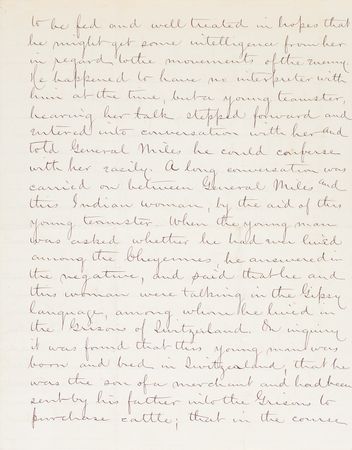 to be fed and well treated in hopes that
he might get some intelligence from her
in regard to the movements of the enemy.
He happened to have no interpreter with
him at the time, but a young teamster,
hearing her talk stepped forward and
entered into conversation with her and
told General Miles he could converse
with her easily. A long conversation was
carried on between General Miles and
this Indian woman, by the aid of this
young teamster. When the young man
was asked whether he had ever lived
among the Cheyennes, he answered in
the negative, and said that he and
this woman were talking in the Gipsy
language, among whom he lived in
the Grisons of Switzerland. On inquiry
it was found that this young man was
born and bred in Switzerland, that he
was the son of a merchant and had been
sent by his father into the Grison to
purchase cattle; that in the course